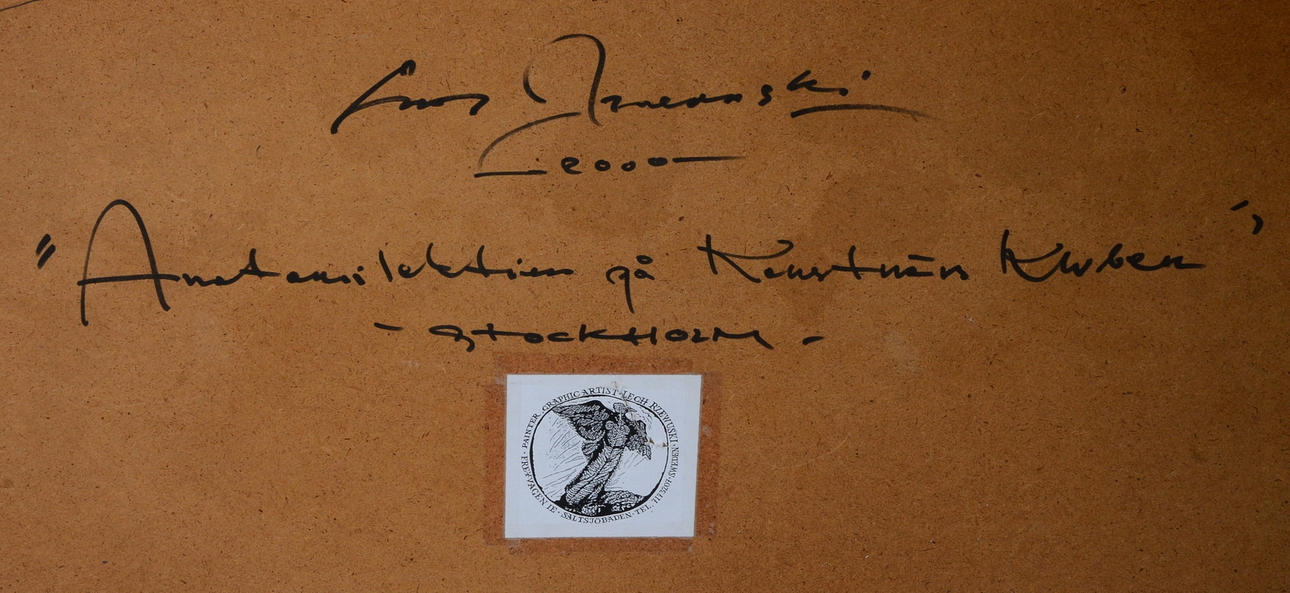 Lech Rzewuski
2000
"Anatomilektion på Konstnärs Kluben"
- STOCKHOLM -
PAINTER · GRAPHIC ARTIST · LECH RZEWUSKI · SWEDEN · TEL. · SALTSJÖBADEN · FREJAVÄGEN 1E ·